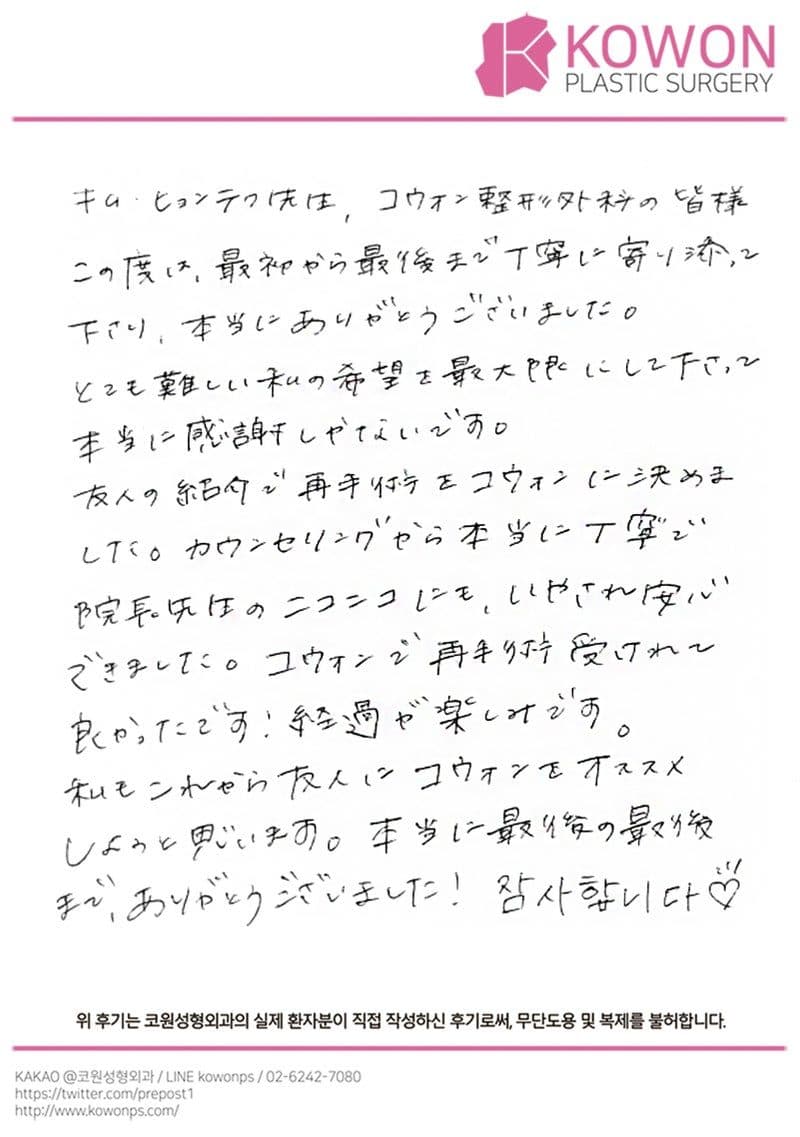 KOWON
PLASTIC SURGERY
キム・ヒョンテク先生, コウォン整形外科の皆様
この度は、最初から最後まで丁寧に寄り添って
下さり、本当にありがとうございました。
とても難しい私の希望を最大限にして下さって
本当に感謝しかないです。
友人の紹介で再手術をコウォンに決めま
した。カウンセリングから本当に丁寧で
院長先生のニコニコにも、いやされ安心
できました。コウォンで再手術受けれて
良かったです！経過が楽しみです。
私もこれから友人にコウォンをオススメ
しようと思います。本当に最後の最後
まで、ありがとうございました！ 잠사합니다♡
위 후기는 코원성형외과의 실제 환자분이 직접 작성하신 후기로써, 무단도용 및 복제를 불허합니다.
KAKAO @코원성형외과 / LINE kowonps / 02-6242-7080
https://twitter.com/prepost1
http://www.kowonps.com/